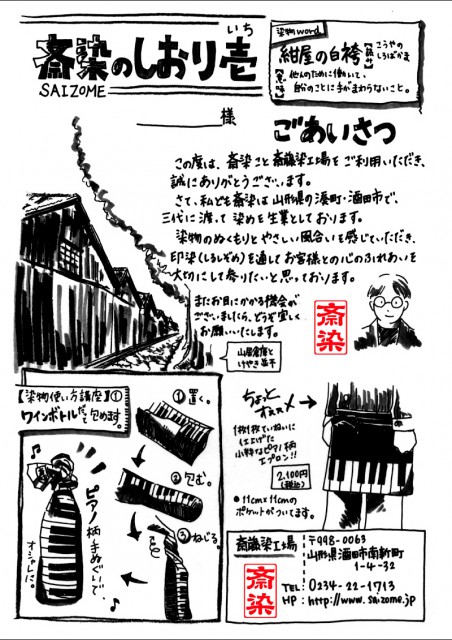 斎染のしおり壱
いち
SAIZOME
染物word
紺屋の白袴
【読み】
こうやの
しろばかま
【意味】
他人のために働いて、
自分のことに手がまわらないこと。
様
ごあいさつ
この度は、斎染こと斎藤染工場をご利用いただき、
誠にありがとうございます。
さて、私ども斎染は山形県の湊町・酒田市で、
三代に渡って染めを生業としております。
染物のぬくもりとやさしい風合いを感じていただき、
印染(しるしぞめ)を通してお客様との心のふれあいを
大切にして参りたいと思っております。
またお目にかかる機会が
ございましたら、どうぞ宜しく
お願いいたします。
斎染
山居倉庫と
けやき並木
【染物使い方講座】①
ワインボトルだって包めます。
①置く。
②包む。
③ねじる。
ピアノ柄手ぬぐいで、
オシャレに。
ちょっと
オススメ
1枚1枚ていねいに
仕上げた
小粋なピアノ柄
エプロン!!
2,100円
(税込)
●11cm×11cmの
ポケットがついてます。
斎藤染工場
斎染
〒998-0063
山形県酒田市南新町
1-4-32
TEL: 0234-22-1713
HP: http://www.saizome.jp